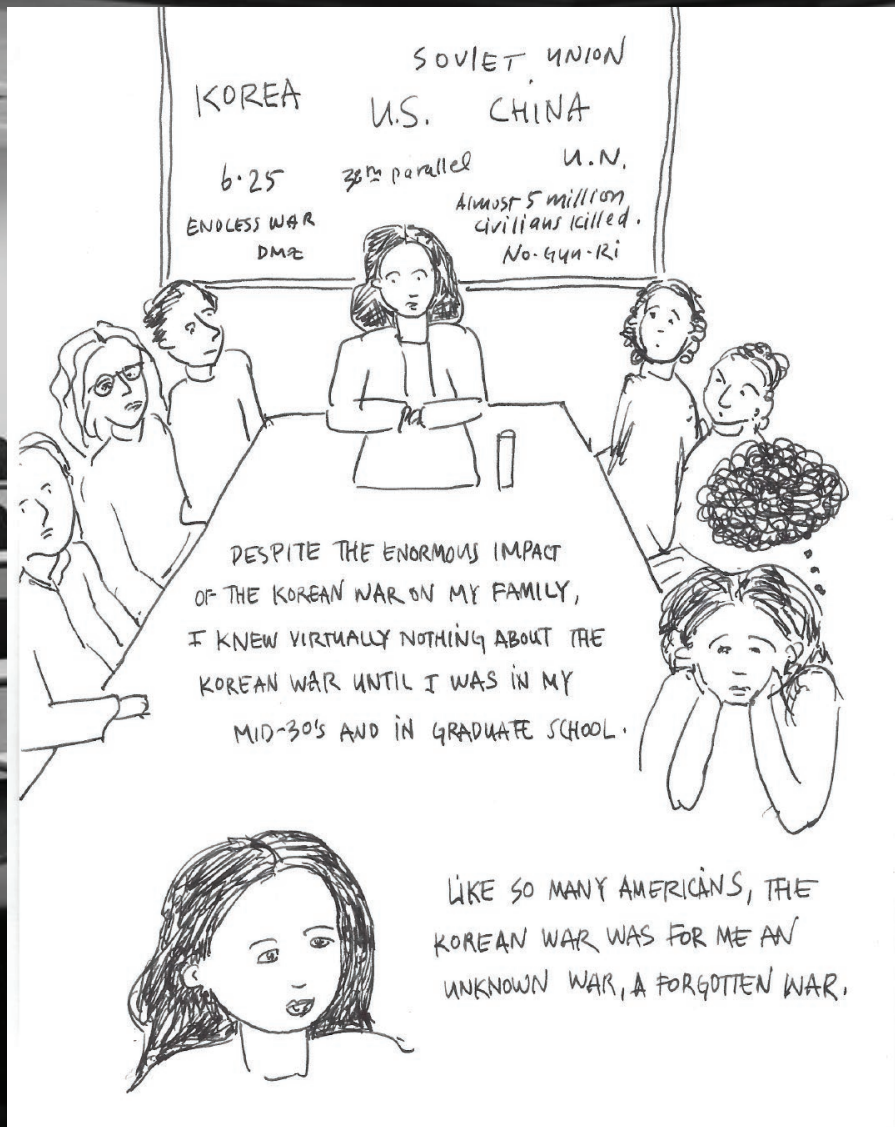 SOVIET UNION
KOREA U.S. CHINA
6·25 38th parallel U.N.
ENDLESS WAR Almost 5 million
DMZ civilians killed.
No-Gun-Ri
DESPITE THE ENORMOUS IMPACT
OF THE KOREAN WAR ON MY FAMILY,
I KNEW VIRTUALLY NOTHING ABOUT THE
KOREAN WAR UNTIL I WAS IN MY
MID-30'S AND IN GRADUATE SCHOOL.
LIKE SO MANY AMERICANS, THE
KOREAN WAR WAS FOR ME AN
UNKNOWN WAR, A FORGOTTEN WAR.